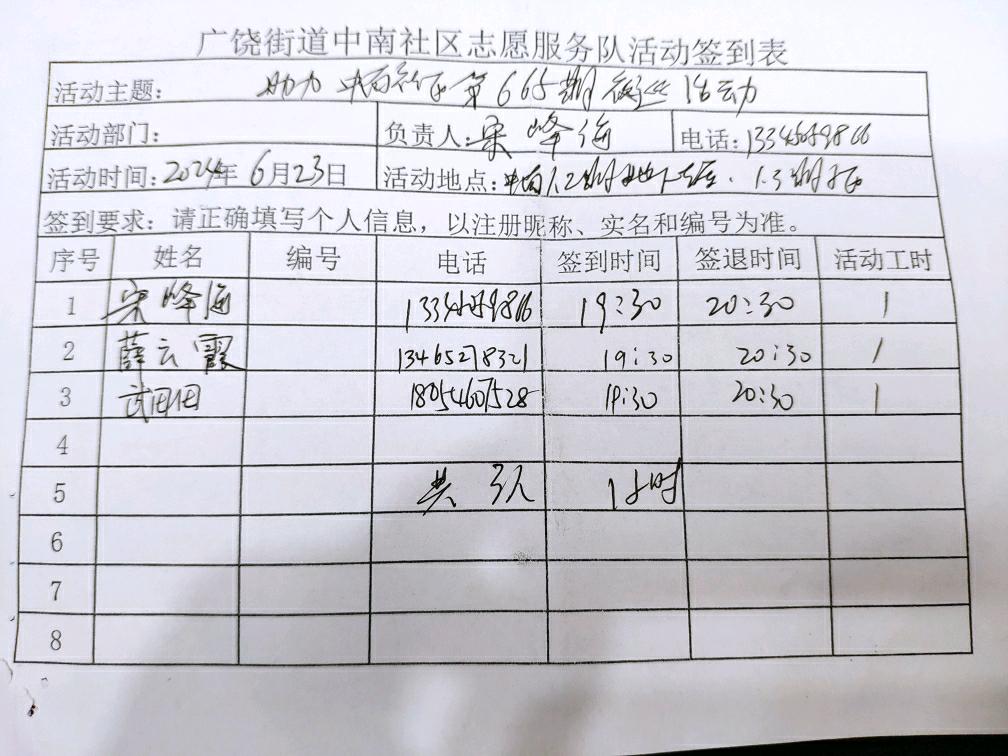 广饶街道中南社区志愿服务队活动签到表
活动主题: 助力中南社区第665期夜巡活动
活动部门: 负责人: 宋峰海 电话:
活动时间: 2024年6月23日 活动地点:
签到要求: 请正确填写个人信息，以注册昵称、实名和编号为准。
序号 姓名 编号 电话 签到时间 签退时间 活动工时
1 宋峰海 19:30 20:30 1
2 薛云霞 13465278321 19:30 20:30 1
3 武田田 18054607528 19:30 20:30 1
4
5 共 3人 1小时
6
7
8